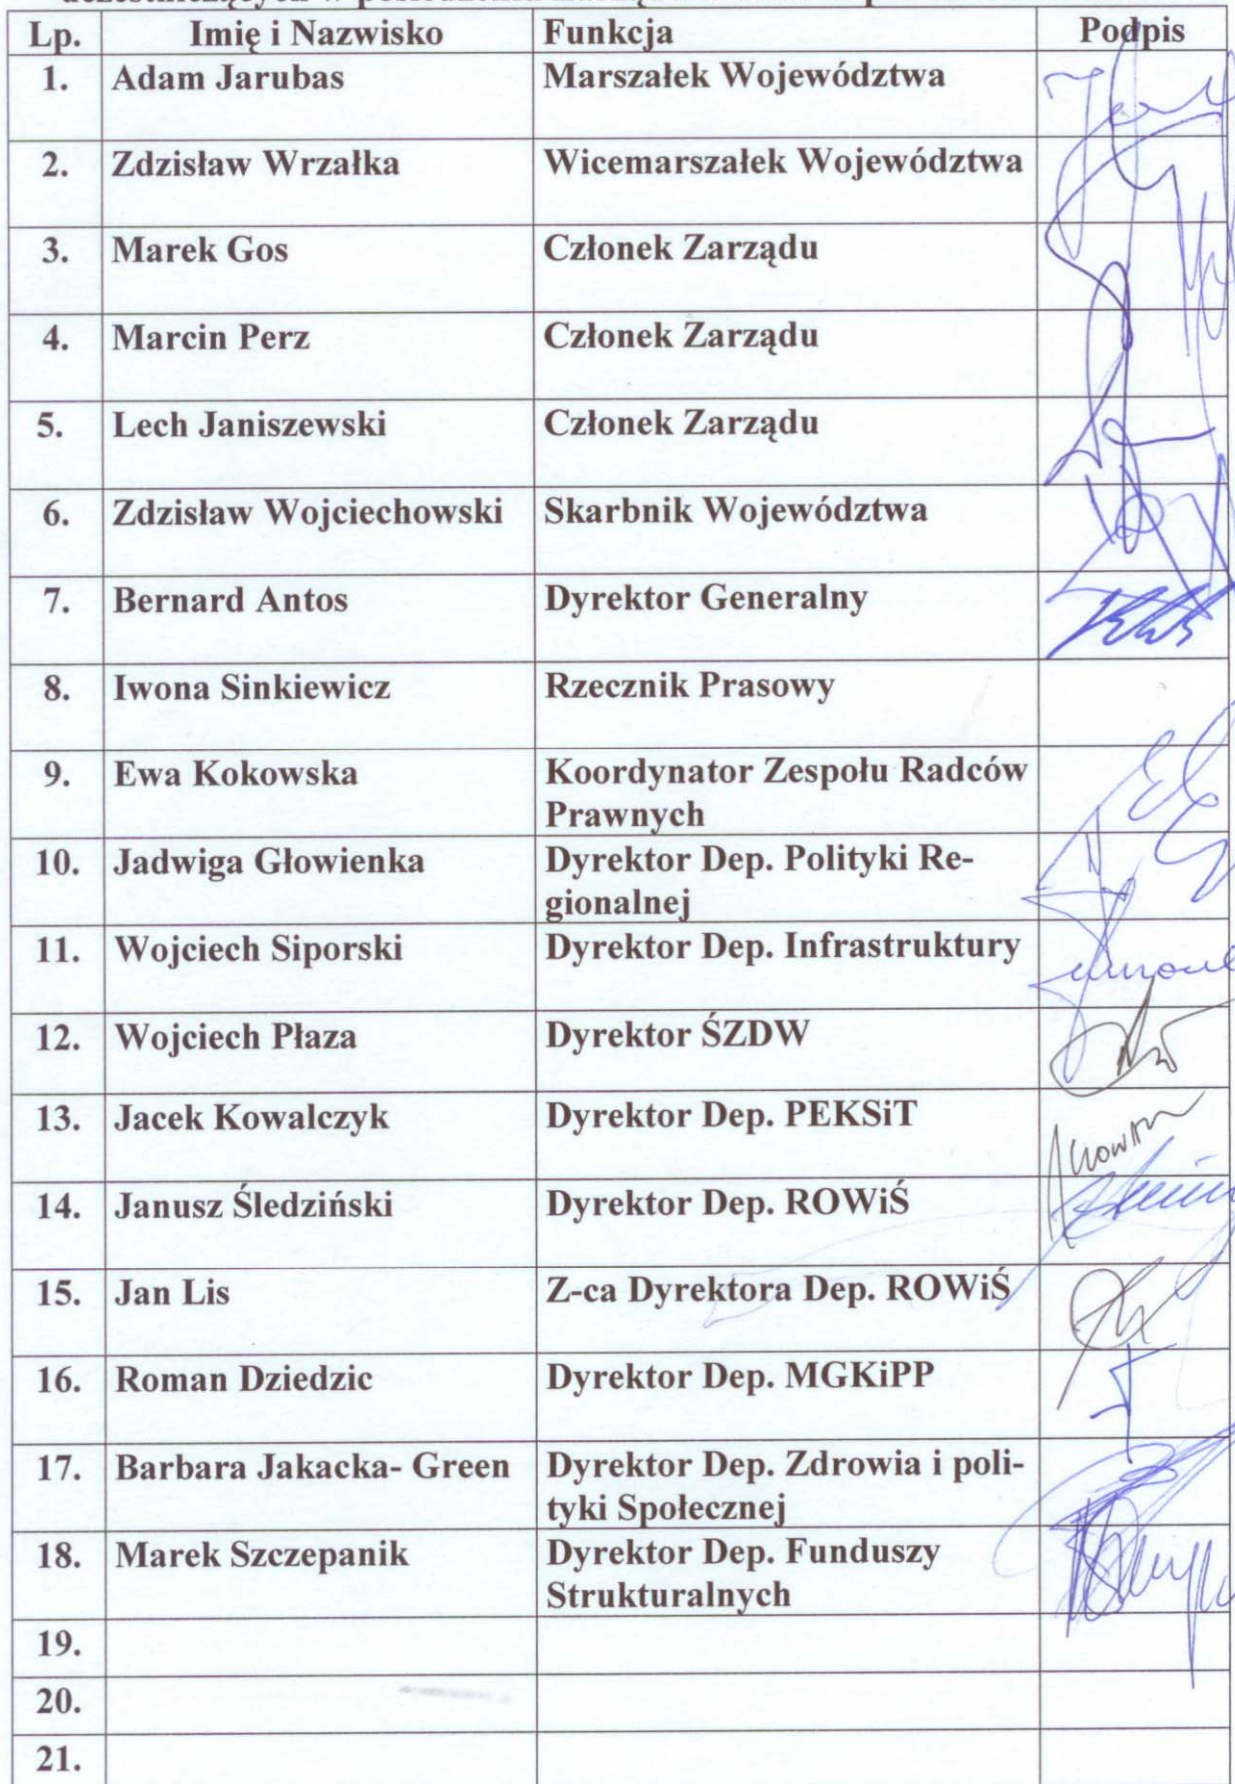 uczestniczących w posiedzeniu Zarządu
Lp. Imię i Nazwisko Funkcja Podpis
1. Adam Jarubas Marszałek Województwa
2. Zdzisław Wrzałka Wicemarszałek Województwa
3. Marek Gos Członek Zarządu
4. Marcin Perz Członek Zarządu
5. Lech Janiszewski Członek Zarządu
6. Zdzisław Wojciechowski Skarbnik Województwa
7. Bernard Antos Dyrektor Generalny
8. Iwona Sinkiewicz Rzecznik Prasowy
9. Ewa Kokowska Koordynator Zespołu Radców
Prawnych
10. Jadwiga Głowienka Dyrektor Dep. Polityki Re-
gionalnej
11. Wojciech Siporski Dyrektor Dep. Infrastruktury
12. Wojciech Płaza Dyrektor ŚZDW
13. Jacek Kowalczyk Dyrektor Dep. PEKSiT
14. Janusz Śledziński Dyrektor Dep. ROWiŚ
15. Jan Lis Z-ca Dyrektora Dep. ROWiŚ
16. Roman Dziedzic Dyrektor Dep. MGKiPP
17. Barbara Jakacka- Green Dyrektor Dep. Zdrowia i poli-
tyki Społecznej
18. Marek Szczepanik Dyrektor Dep. Funduszy
Strukturalnych
19.
20.
21.